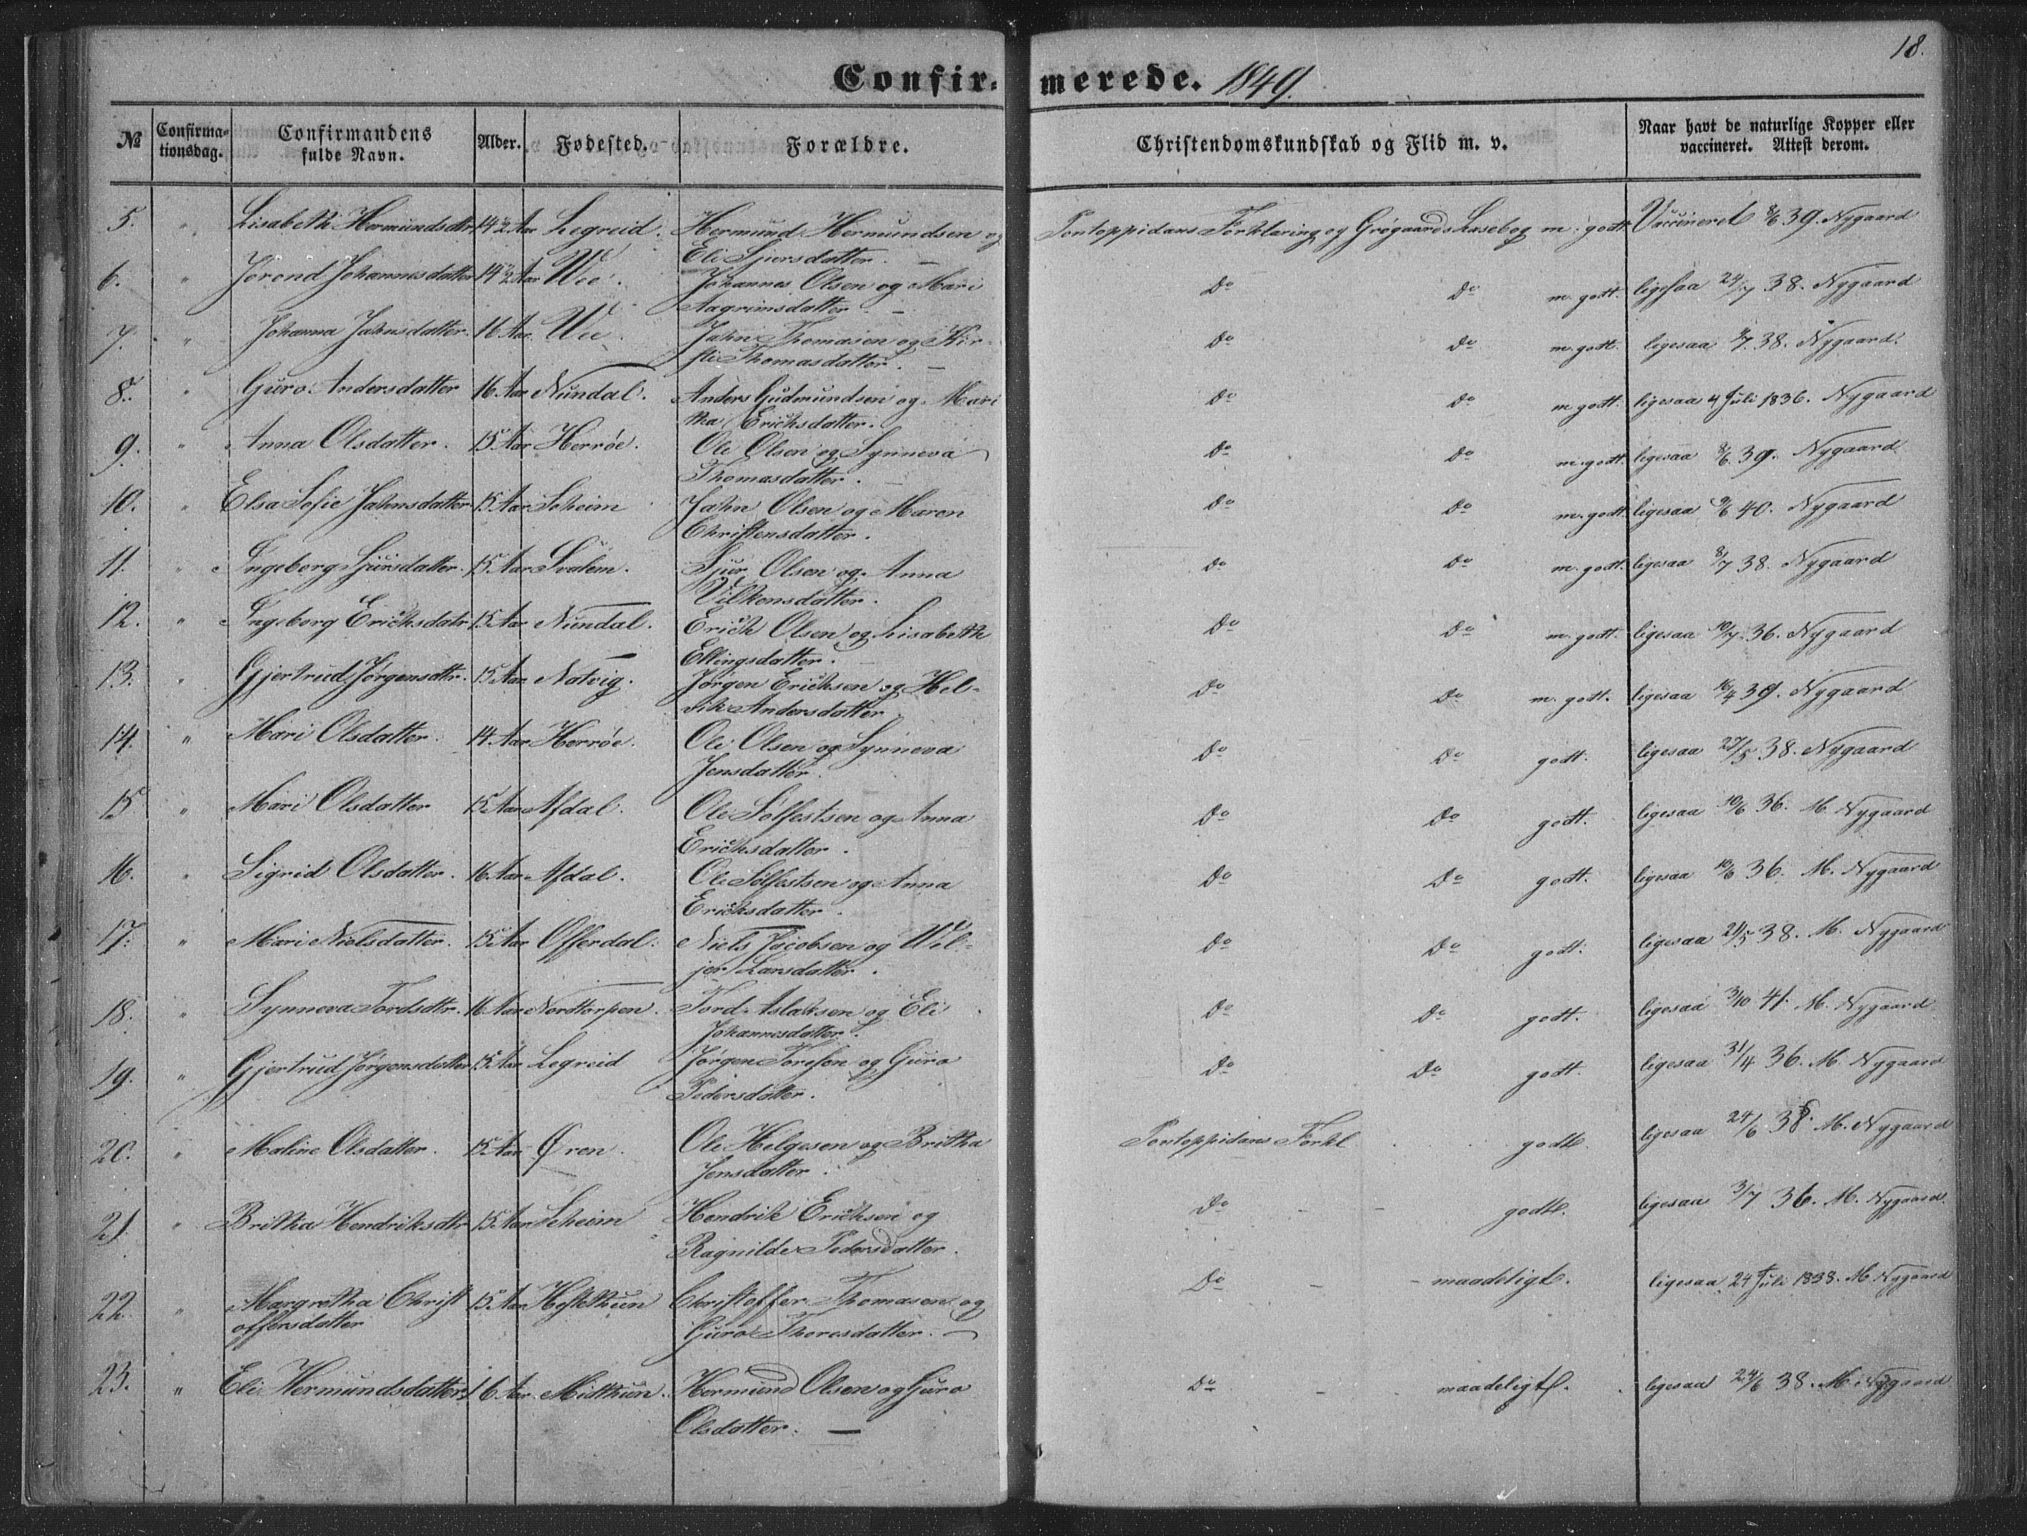 18.
Confirmerede. 1849.
№ Confirmationsdag. Confirmandens fulde Navn. Alder. Fødested. Forældre. Christendomskundskab og Flid m. v. Naar havt de naturlige Kopper eller vaccineret. Attest derom.
5. " Lisabeth Hermundsdtr. 14 1/2 Aar Legreid. Hermund Hermundsen og Pontoppidans Forklaring og Grøgaards Læsebog m. godt. Vaccineret 8/6 39. Nygaard
Eli Sjursdatter. —
6. " Jorond Johannesdatter 14 1/2 Aar Wee. Johannes Olsen og Mari Do Do m. godt. ligesaa 24/7 38. Nygaard
Aagrimsdatter. —
7. " Johanna Jahnsdatter. 16 Aar. Wee. Jahn Thomasen og Kir- Do Do m. godt. ligesaa 38. Nygaard.
sti Thomasdatter. —
8. " Guro Andersdatter 16 Aar Nundal. Anders Gudmundsen og Mari Do Do m godt. ligesaa 4 Juli 1836. Nygaard
tha Ericksdatter.
9. " Anna Olsdatter. 15 Aar Herrøe. Ole Olsen og Synneva Do Do m. godt. ligesaa 8/6 39. Nygaard
Thomasdatter. —
10. " Elsa Sofie Jahnsdatter 15 Aar Seheim Jahn Olsen og Maren Do Do m. godt. ligesaa 9/6 40. Nygaard
Christensdatter.
11. " Ingeborg Sjursdatter. 15 Aar Svalem. Sjur Olsen og Anna Do Do m. godt. ligesaa 8/7 38. Nygaard
Vilkensdatter.
12. " Ingeborg Ericksdatr 15 Aar Nundal. Erick Olsen og Lisabeth Do Do m. godt. ligesaa 10/7 36. Nygaard
Ellingsdatter. —
13. " Gjertrud Jørgensdtr. 15 Aar Natvig. Jørgen Ericksen og Hel- Do Do m. godt. ligesaa 16/4 39. Nygaard
vik Andersdatter
14. " Mari Olsdatter. 14 Aar Herrøe. Ole Olsen og Synneva Do Do godt. ligesaa 27/5 38. Nygaard
Jensdatter.
15 " Mari Olsdatter 15 Aar Afdal. Ole Sølfestsen og Anna Do Do godt. ligesaa 10/6 36. M. Nygaard
Ericksdatter.
16. " Sigrid Olsdatter. 16 Aar Afdal. Ole Sølfestsen og Anna Do Do godt. ligesaa 10/6 36. M. Nygaard
Ericksdatter.
17. " Mari Nielsdatter. 15 Aar Offerdal. Niels Jacobsen og Vel- Do Do godt. ligesaa 21/5 38. M. Nygaard
jer Larsdatter.
18. " Synneva Tordsdtr. 16 Aar Nordtorpen. Tord Aslaksen og Eli Do Do godt. ligesaa 3/10 41. M. Nygaard
Johannesdatter.
19. " Gjertrud Jørgensdatter 15 Aar Legreid Jørgen Toresen og Guro Do Do godt. ligesaa 31/4 36. M. Nygaard
Pedersdatter.
20. " Maline Olsdatter. 15 Aar Øren. Ole Helgesen og Britha Pontoppidans Forkl godt. ligesaa 24/6 38. M. Nygaard
Jensdatter.
21. " Britha Hendriksdtr 15 Aar Seheim Hendrik Ericksen og Do — — godt. ligesaa 3/7 36. M. Nygaard.
Ragnilde Pedersdatter.
22. " Margretha Christ 15 Aar Hestethun Christoffer Thomasen og Do — — maadeligt. ligesaa 24 Juli 1838. M. Nygaard
offersdatter Guro Thoresdatter. —
23. " Eli Hermundsdatter 16 Aar. Midthun. Hermund Olsen og Guro Do — — maadeligt. ligesaa 24/6 38. M. Nygaard
Olsdatter. —